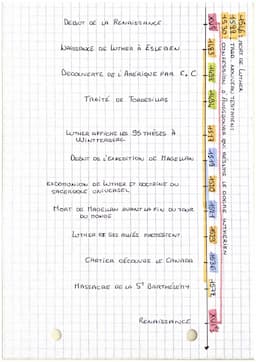 1546: MORT DE LUTHER
1522: TRAD. NOUVEAU TESTAMENT
1530: CONFESSION D'AUGSBOURG QUI RÉSUME LE DOGME LUTHERIEN
DEBUT DE LA RENAISSANCE
NAISSANCE DE LUTHER À EISLEBEN 1483
DECOUVERTE DE L'AMÉRIQUE PAR C.C 1492
TRAITÉ DE TORDESILLAS 1494
LUTHER AFFICHE LES 95 THÈSES À
WINTTENBERG 1517
DEBUT DE L'EXPEDITION DE MAGELLAN 1519
LUTHER ET DOCTRINE DU
SACERDOCE UNIVERSEL 1520
MORT DE MAGELLAN AVANT LA FIN DU TOUR
DU MONDE 1521
LUTHER ET SES ALLIÉS PROTESTENT 1529
CARTIER DÉCOUVRE LE CANADA 1534
MASSACRE DE LA ST BARTHÉLÉMY 1572
RENAISSANCE